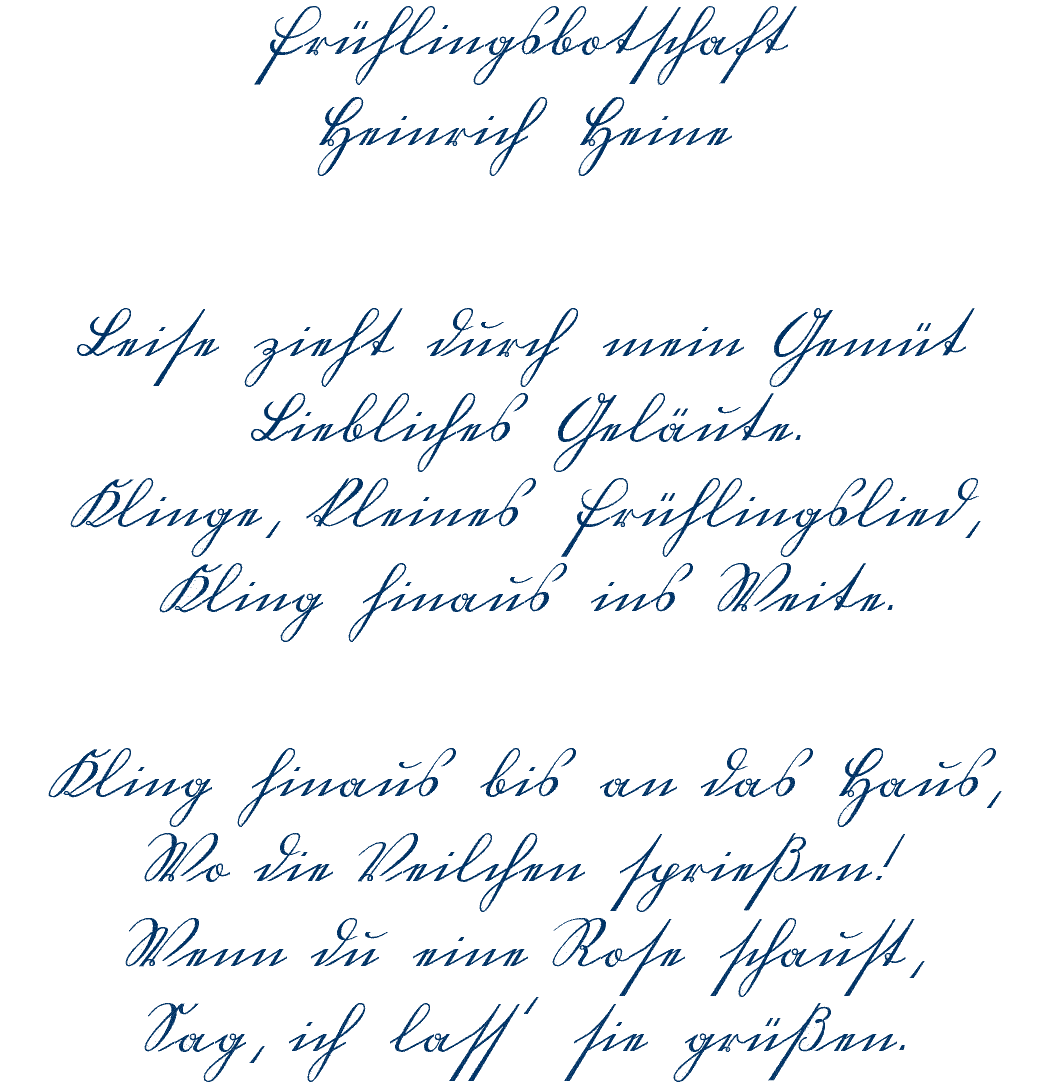 Frühlingsbotschaft
Heinrich Heine
Leise zieht durch mein Gemüt
Liebliches Geläute.
Klinge, kleines Frühlingslied,
Kling hinaus ins Weite.
Kling hinaus bis an das Haus,
Wo die Veilchen sprießen!
Wenn du eine Rose schaust,
Sag, ich lass' sie grüßen.